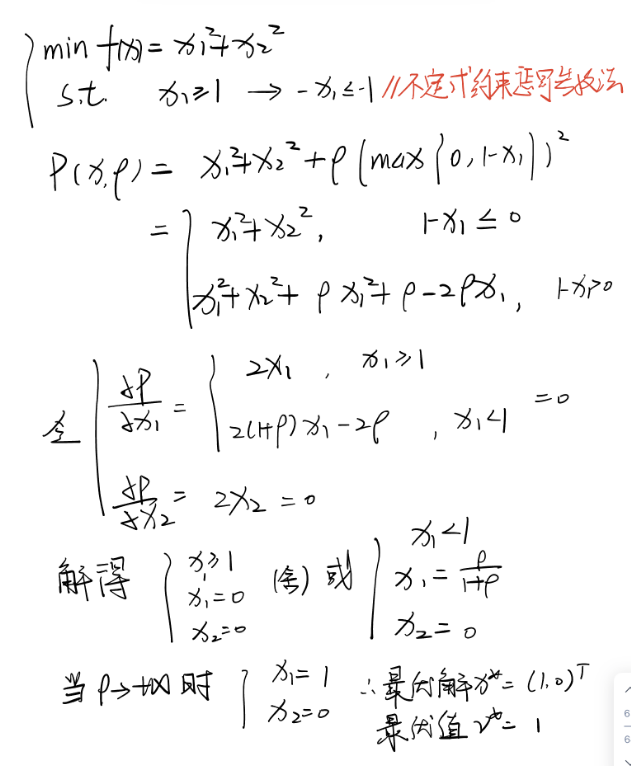 min f(x) = x₁² + x₂²
s.t. x₁ ≥ 1 → -x₁ ≤ -1 //不定式约束惩罚
P(x, ρ) = x₁² + x₂² + ρ (max{0, 1-x₁})²
= { x₁² + x₂², 1-x₁ ≤ 0
x₁² + x₂² + ρx₁² + ρ - 2ρx₁, 1-x₁>0
令 { ∂P/∂x₁ = { 2x₁, x₁ ≥ 1
2(1+ρ)x₁ - 2ρ, x₁<1 = 0
∂P/∂x₂ = 2x₂ = 0
解得 { x₁ ≥ 1 x₁ = 0 x₂ = 0 (舍) 或 { x₁<1 x₁ = ρ/(1+ρ) x₂ = 0
当 ρ→+∞ 时 { x₁ = 1 x₂ = 0 ∴最优解 x* = (1, 0)ᵀ
最优值 v* = 1
6
6